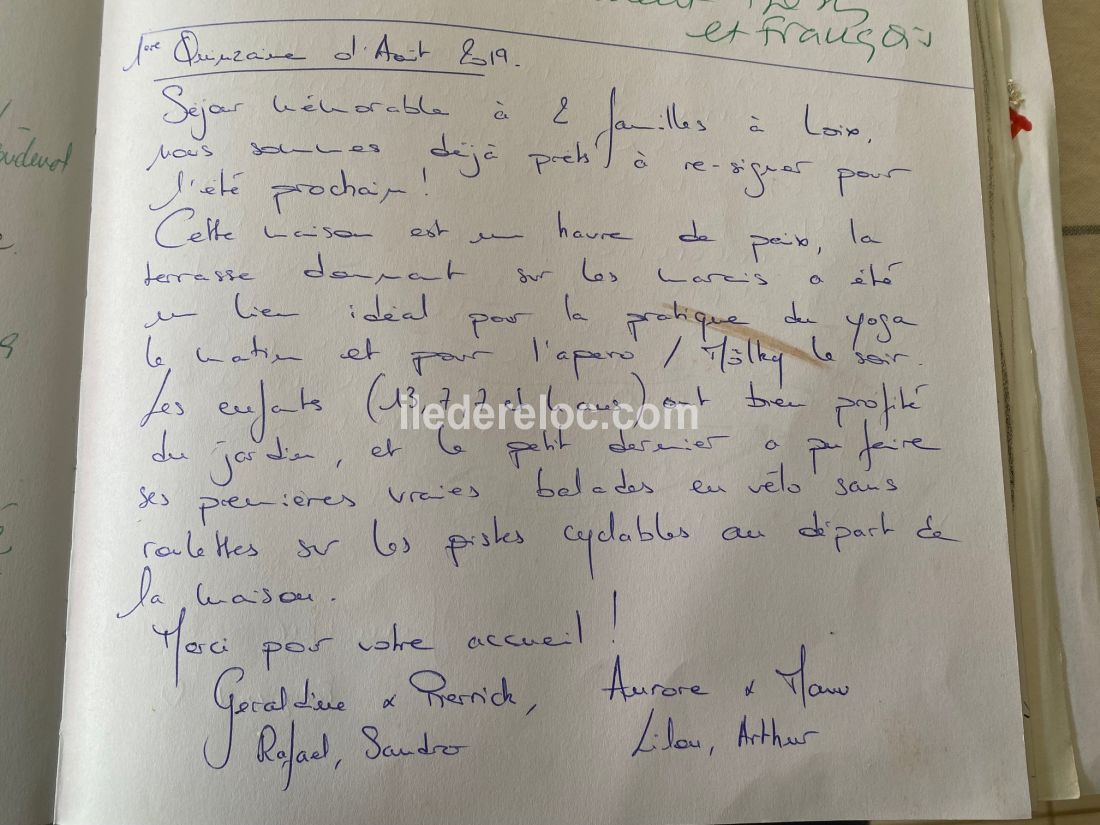 et français
oudenot
1ère Quinzaine d'Août 2019.
Séjour mémorable à 2 familles à Loix,
nous sommes déjà prêts à re-signer pour
l'été prochain !
Cette maison est un havre de paix, la
terrasse donnant sur les marais a été
un lien idéal pour la pratique du yoga
le matin et pour l'apéro / Mölky le soir.
Les enfants (13, 7, 7 et 4 ans) ont bien profité
iledereloc.com
du jardin, et le petit dernier a pu faire
ses premières vraies balades en vélo sans
roulettes sur les pistes cyclables au départ de
la maison.
Merci pour votre accueil !
Géraldine & Pierrick, Aurore & Manu
Rafael, Sandro Lilou, Arthur